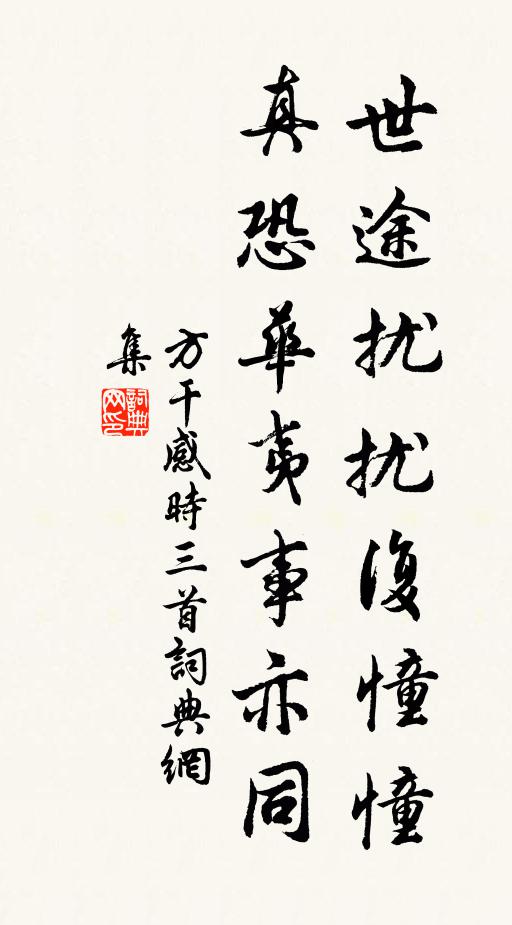 世途扰扰復憧憧
真恐華夷事亦同
方干感時三首詞典網
集
詞典网印